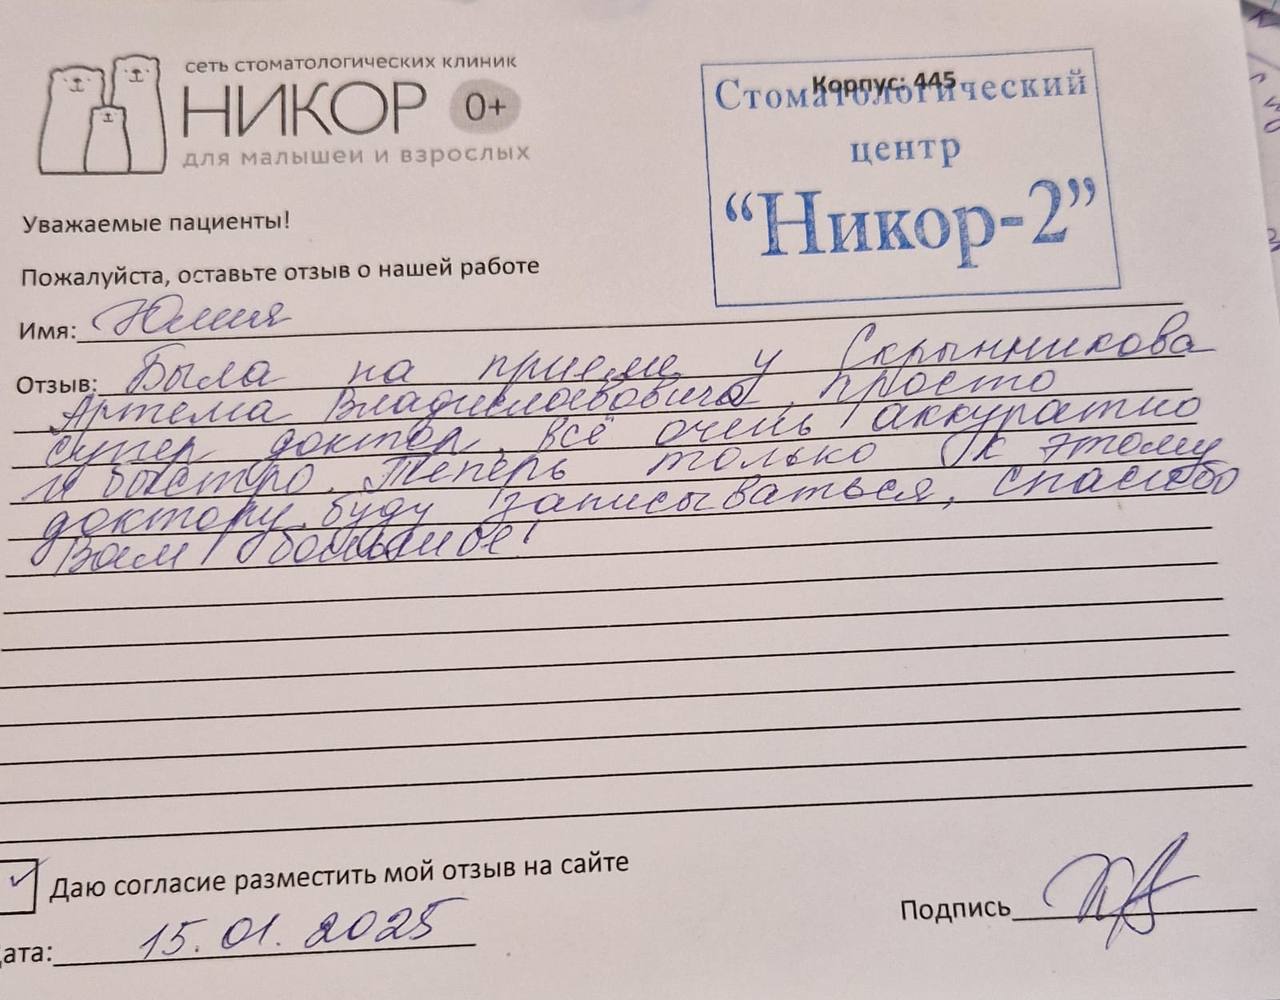 сеть стоматологических клиник
НИКОР 0+
для малышей и взрослых
Корпус: 445
Стоматологический
центр
“Никор-2”
Уважаемые пациенты!
Пожалуйста, оставьте отзыв о нашей работе
Имя: Юлия
Отзыв: Была на приеме у Скрынникова
Артема Владиславовича, просто
супер доктор, всё очень аккуратно
и быстро. Теперь только к этому
доктору буду записываться, спасибо
Вам большое!
Даю согласие разместить мой отзыв на сайте
Подпись
ата: 15.01.2025